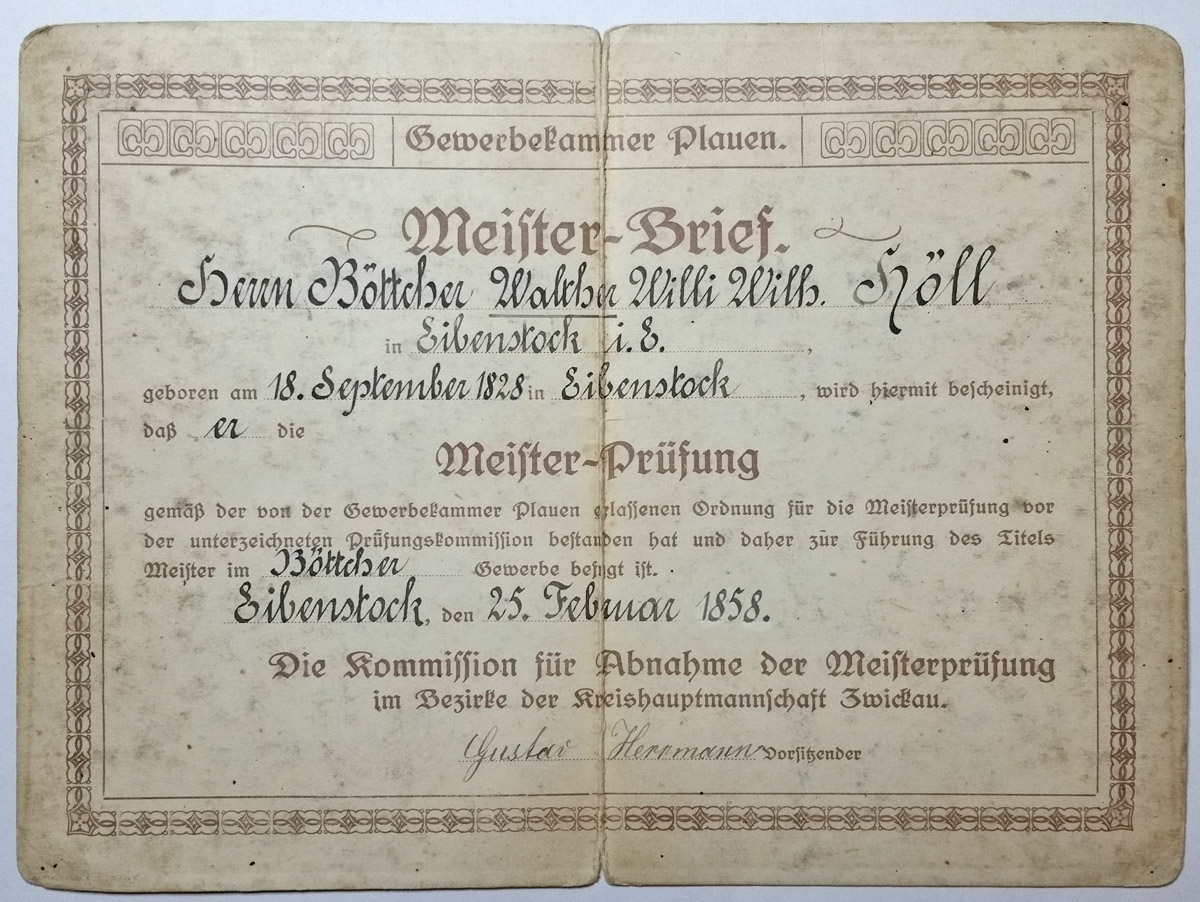 Gewerbekammer Plauen.
Meister-Brief.
Herrn Böttcher Walther Willi Wilh. Höll
in Eibenstock i. E.,
geboren am 18. September 1828 in Eibenstock, wird hiermit bescheinigt,
daß er die
Meister-Prüfung
gemäß der von der Gewerbekammer Plauen erlassenen Ordnung für die Meisterprüfung vor
der unterzeichneten Prüfungskommission bestanden hat und daher zur Führung des Titels
Meister im Böttcher Gewerbe befugt ist.
Eibenstock, den 25. Februar 1858.
Die Kommission für Abnahme der Meisterprüfung
im Bezirke der Kreishauptmannschaft Zwickau.
Gustav Herrmann Vorsitzender